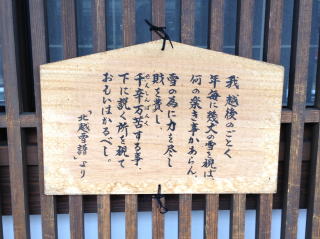 我越後のごとく
年毎に幾丈の雪を視ば
何の楽き事かあらん。
雪の為に力を尽し
財を費し
千辛万苦する事、
せんしんばんく
下に説く所を視て
おもいはかるべし。
「北越雪譜」より